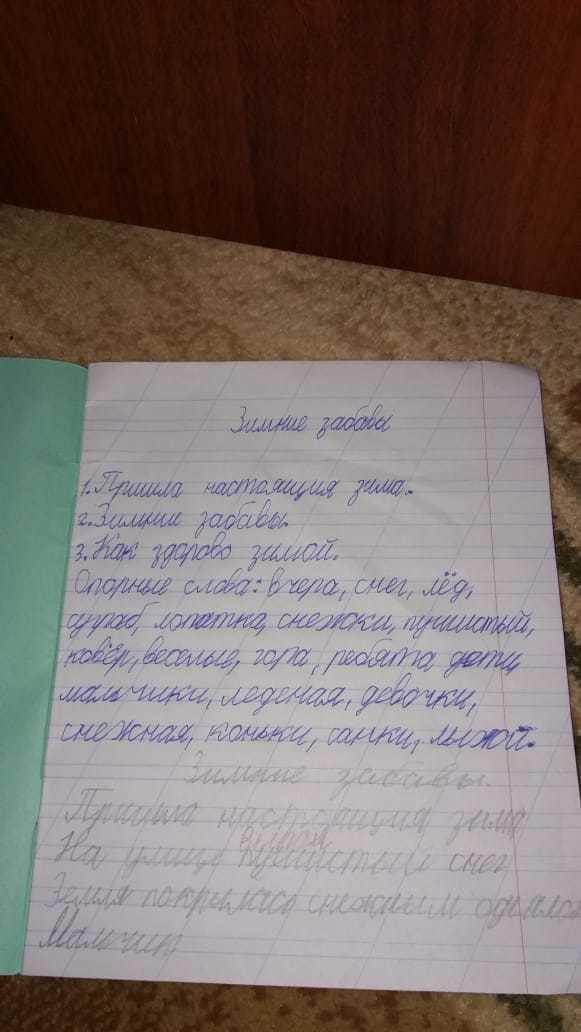 Зимние забавы
1. Пришла настоящия зима.
2. Зимнии забавы.
3. Как здорово зимой.
Опорные слова: вчера, снег, лёд,
суграб, лопатка, снежоки, пушистый,
ковёр, веселые, гора, ребята, дети,
мальчики, леденая, девочки,
снежная, коньки, санки, лыжой.
Зимние забавы.
Пришла настоящия зима
На улице пушистый снег
Земля покрылась снежным одеялом
Мальчик